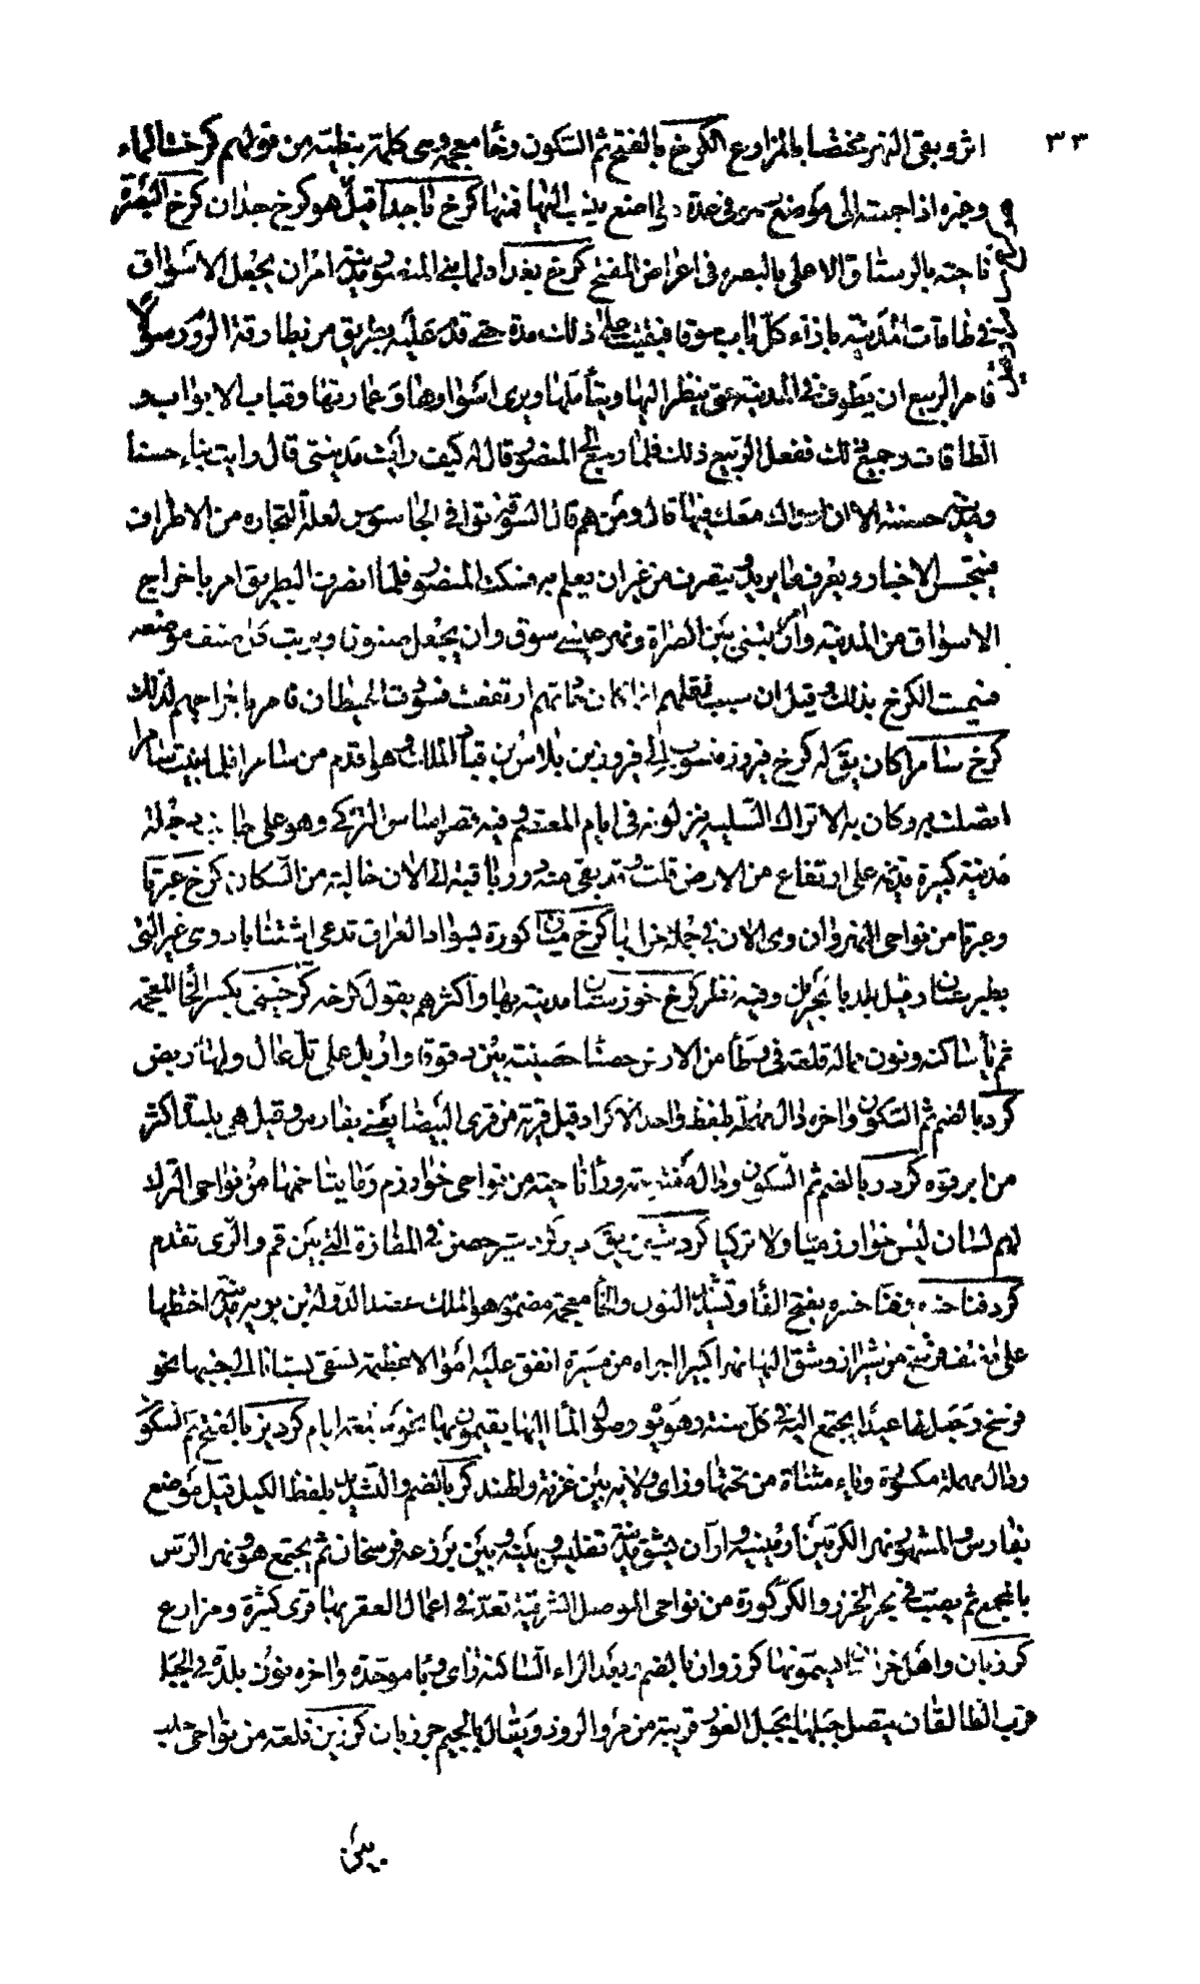 ٣٣
اثر وبقى النهر مختصا بالمزارع الكرخ بالفتح ثم السكون وخا معجمه وهى كلمة نبطية من قولهم كرخت الماء
وغيره اذا جمعته الى موضع وهى فى عدة مواضع ينسب اليها فمنها كرخ باجدا قيل هو كرخ جدان كرخ البصرة
ناحيه بالرستاق الاعلى بالبصره فى اعراض المفتح كرخ بغداد لما بنى المنصور مدينته امر ان يجعل الاسواق
فى طاقات المدينه باذاء كل باب سوقا فبقيت على ذلك مدة حتى قدم عليه بطريق من بطارقة الروم رسولا
فامر الربيع ان يطوف فى المدينة حتى ينظر اليها ويتأملها ويرى اسوارها وعمارتها وقباب الابواب و
الطاقات وجميع ذلك ففعل الربيع ذلك فلما رجع الى المنصور قال له كيف رايت مدينتى قال رايت بناء حسنا
ومدينة حصينة الا ان اعداك معك فيها قال ومن هم قال السوقة يوافى الجاسوس لعلة التجاره من الاطراف
فيتجسس الاخبار ويعرف ما يريد وينصرف من غير ان يعلم به فسكت المنصور فلما انصرف البطريق امر باخراج
الاسواق من المدينه وامر ان يبنى بين الصراة ونهر عيسى سوق وان يجعل صنوفا ويرتب كل صنف موضعه
فسميت الكرخ بذلك وقيل ان سبب نقلهم ان دخاخينهم ارتفعت فسودت الحيطان فامر باخراجهم لذلك
كرخ سامرا كان يق له كرخ فيروز منسوب الى فيروز بن بلاس بن قباد الملك وهو اقدم من سامرا فلما بنيت سامرا
اتصلت به وكان به الاتراك الشبليه ينزلونه فى ايام المعتصم وفيه قصر اشناس التركى وهو على
مدينة كبيرة قديمه على ارتفاع من الارض قلت وقد بقى منه دور باقية الى الان خالية من السكان كرخ عبرتا
وعبرتا من نواحى النهروان وهى الان فى جملة خرابها كرخ ميسان كورة بسواد العراق تدعى استراباد وهى غير التى
بطبرستان وقيل بلد بالبحرين وفيه نظر كرخ خوزستان مدينة بها واكثرهم يقول كرخه كرخينى بكسر الخا المعجمه
ثم يا ساكنه ونون مماله قلعه فى وطأ من الارض حصنا حصينة بين دقوقا واربل على تل عال ولها ربض
كرد بالضم ثم السكون واخره دال مهملة بلفظ واحد الاكراد قيل قرية من قرى البيضا يعنى بفارس وقيل هى بلدة اكثر
من ابرقوه كردر بالضم ثم السكون ودال مفتوحة وراء ناحيه من نواحى خوارزم وما يتاخمها من نواحى الترك
لهم لسان ليس خوارزميا ولا تركيا كردشير يق دير كردشير حصن فى المفازة التى بين قم والرى تقدم
كرد فنا خسره وفنا خسره بفتح الفا وتشديد النون والخا معجمة مضمومه هو الملك عضد الدولة بن بويه مدينة اختطها
على نصف فرسخ من شيراز وشق اليها نهرا كبيرا اجراه من مسيرة انفق عليه اموالا عظيمة تسقى بستانا الى جنبها نحو
فرسخ وجعل لها عيدا يجتمع اليه فى كل سنة وهو يوم وصول الما اليها يقيمون بها نحو سبعه ايام كرديز بالفتح ثم السكون
ودال مهملة مكسورة وياء مثناة من تحتها وزاى ولاية بين غزنة والهند كر بالضم والتشديد بلفظ الكيل قيل موضع
بفارس والمشهور نهر الكر بين ارمينيه واران يشق مدينة تفليس وبينه وبين برذعه فرسخان ثم يجتمع هو ونهر الرس
بالجمع ثم يصب فى بحر الخزر والكر كورة من نواحى الموصل الشرقية تعد فى اعمال العقر بها قرى كثيرة ومزارع
كرزبان واهل خراسان يسمونها كرزوان بالضم وبعد الراء الساكنة زاى وبا موحدة واخره نون بلدة فى الجبال
قرب الطالقان يتصل جبلها بجبل الغور قريبة من مرو الروذ ويقال بالجيم جرزبان كرزين قلعه من نواحى حلب